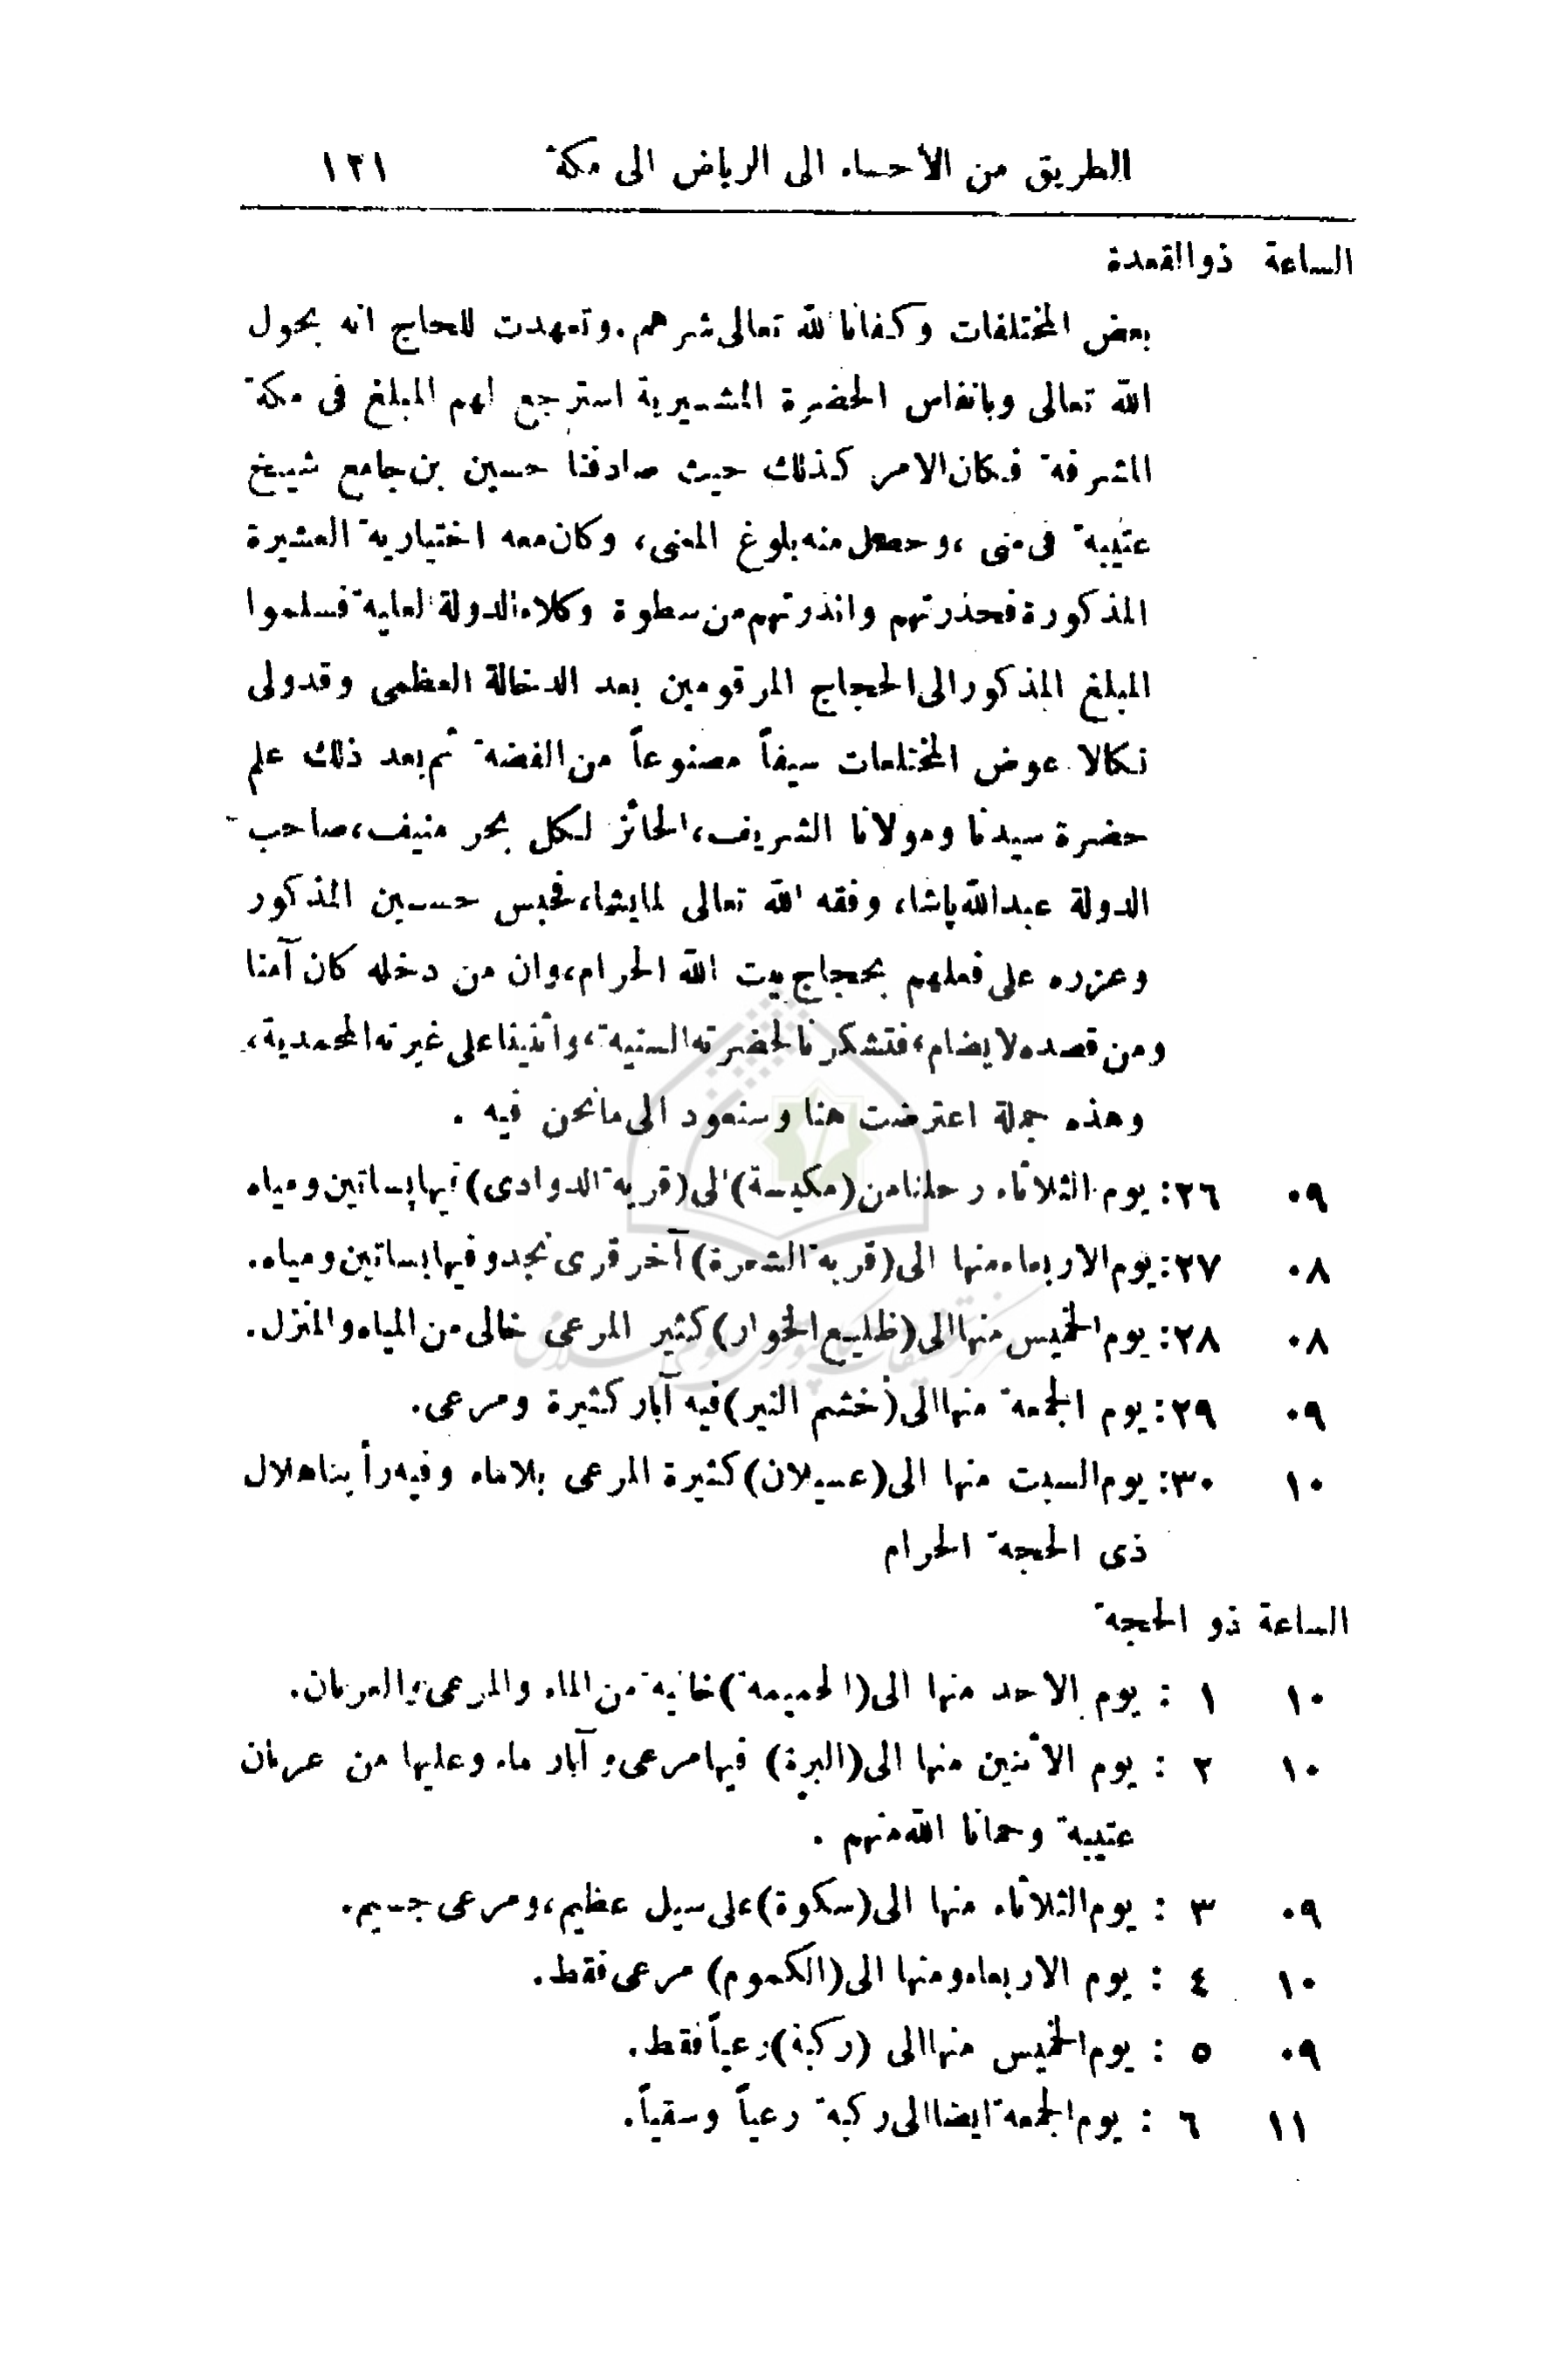 الطريق من الأحساء الى الرياض الى مكة ١٢١
الساعة ذوالقعدة
بعض المختلفات وكفانا الله تعالى شرهم. وتعهدت للحاج انه بحول
الله تعالى وبانفاس الحضرة المشيرية استرجع لهم المبلغ فى مكة
المشرفة فكان الامر كذلك حيث صادفنا حسين بن جامع شيخ
عتيبة فى منى ، وحصل منه بلوغ المنى، وكان معه اختيارية العشيرة
المذكورة فحذرتهم وانذرتهم من سطوة وكلاء الدولة العليه فسلموا
المبلغ المذكور الى الحجاج المرقومين بعد الدخالة العظمى وقدولى
نكالا عوض المختلعات سيفاً مصنوعاً من الفضة ثم بعد ذلك علم
حضرة سيدنا ومولانا الشريف، الحائز لكل بحر منيف، صاحب
الدولة عبدالله پاشا، وفقه الله تعالى لمايشا، فحبس حسين المذكور
وعزره على فعلهم بحجاج بيت الله الحرام، وان من دخله كان آمنا
ومن قصده لايضام، فتشكرنا لحضرته السنية، وأثنينا على غيرته المحمدية،
وهذه جملة اعترضت هنا وسنعود الى مانحن فيه .
٠٩ ٢٦: يوم الثلاثاء رحلنا من (مكيسة) الى (قرية الدوادى) فيها بساتين ومياه
٠٨ ٢٧: يوم الاربعاء منها الى (قرية الشعرة) آخر قرى نجد وفيها بساتين ومياه.
٠٨ ٢٨: يوم الخميس منها الى (ظليع الحوار) كثير المرعى خالى من المياه والمنزل.
٠٩ ٢٩: يوم الجمعة منها الى (خشم النير) فيه آبار كثيرة ومرعى.
١٠ ٣٠: يوم السبت منها الى (عسيلان) كثيرة المرعى بلا ماء وفيه رأينا هلال
ذى الحجة الحرام
الساعة ذو الحجة
١٠ ١ : يوم الاحد منها الى (الحميمة) خالية من الماء والمرعى والعربان.
١٠ ٢ : يوم الأثنين منها الى (البرة) فيها مرعى و آبار ماء وعليها من عربان
عتيبة وحمانا الله منهم .
٠٩ ٣ : يوم الثلاثاء منها الى (سكوة) على سيل عظيم، ومرعى جسيم.
١٠ ٤ : يوم الاربعاء ومنها الى (الكموم) مرعى فقط.
٠٩ ٥ : يوم الخميس منها الى (ركبة) رعياً فقط.
١١ ٦ : يوم الجمعة ايضا الى ركبة رعياً وسقياً.